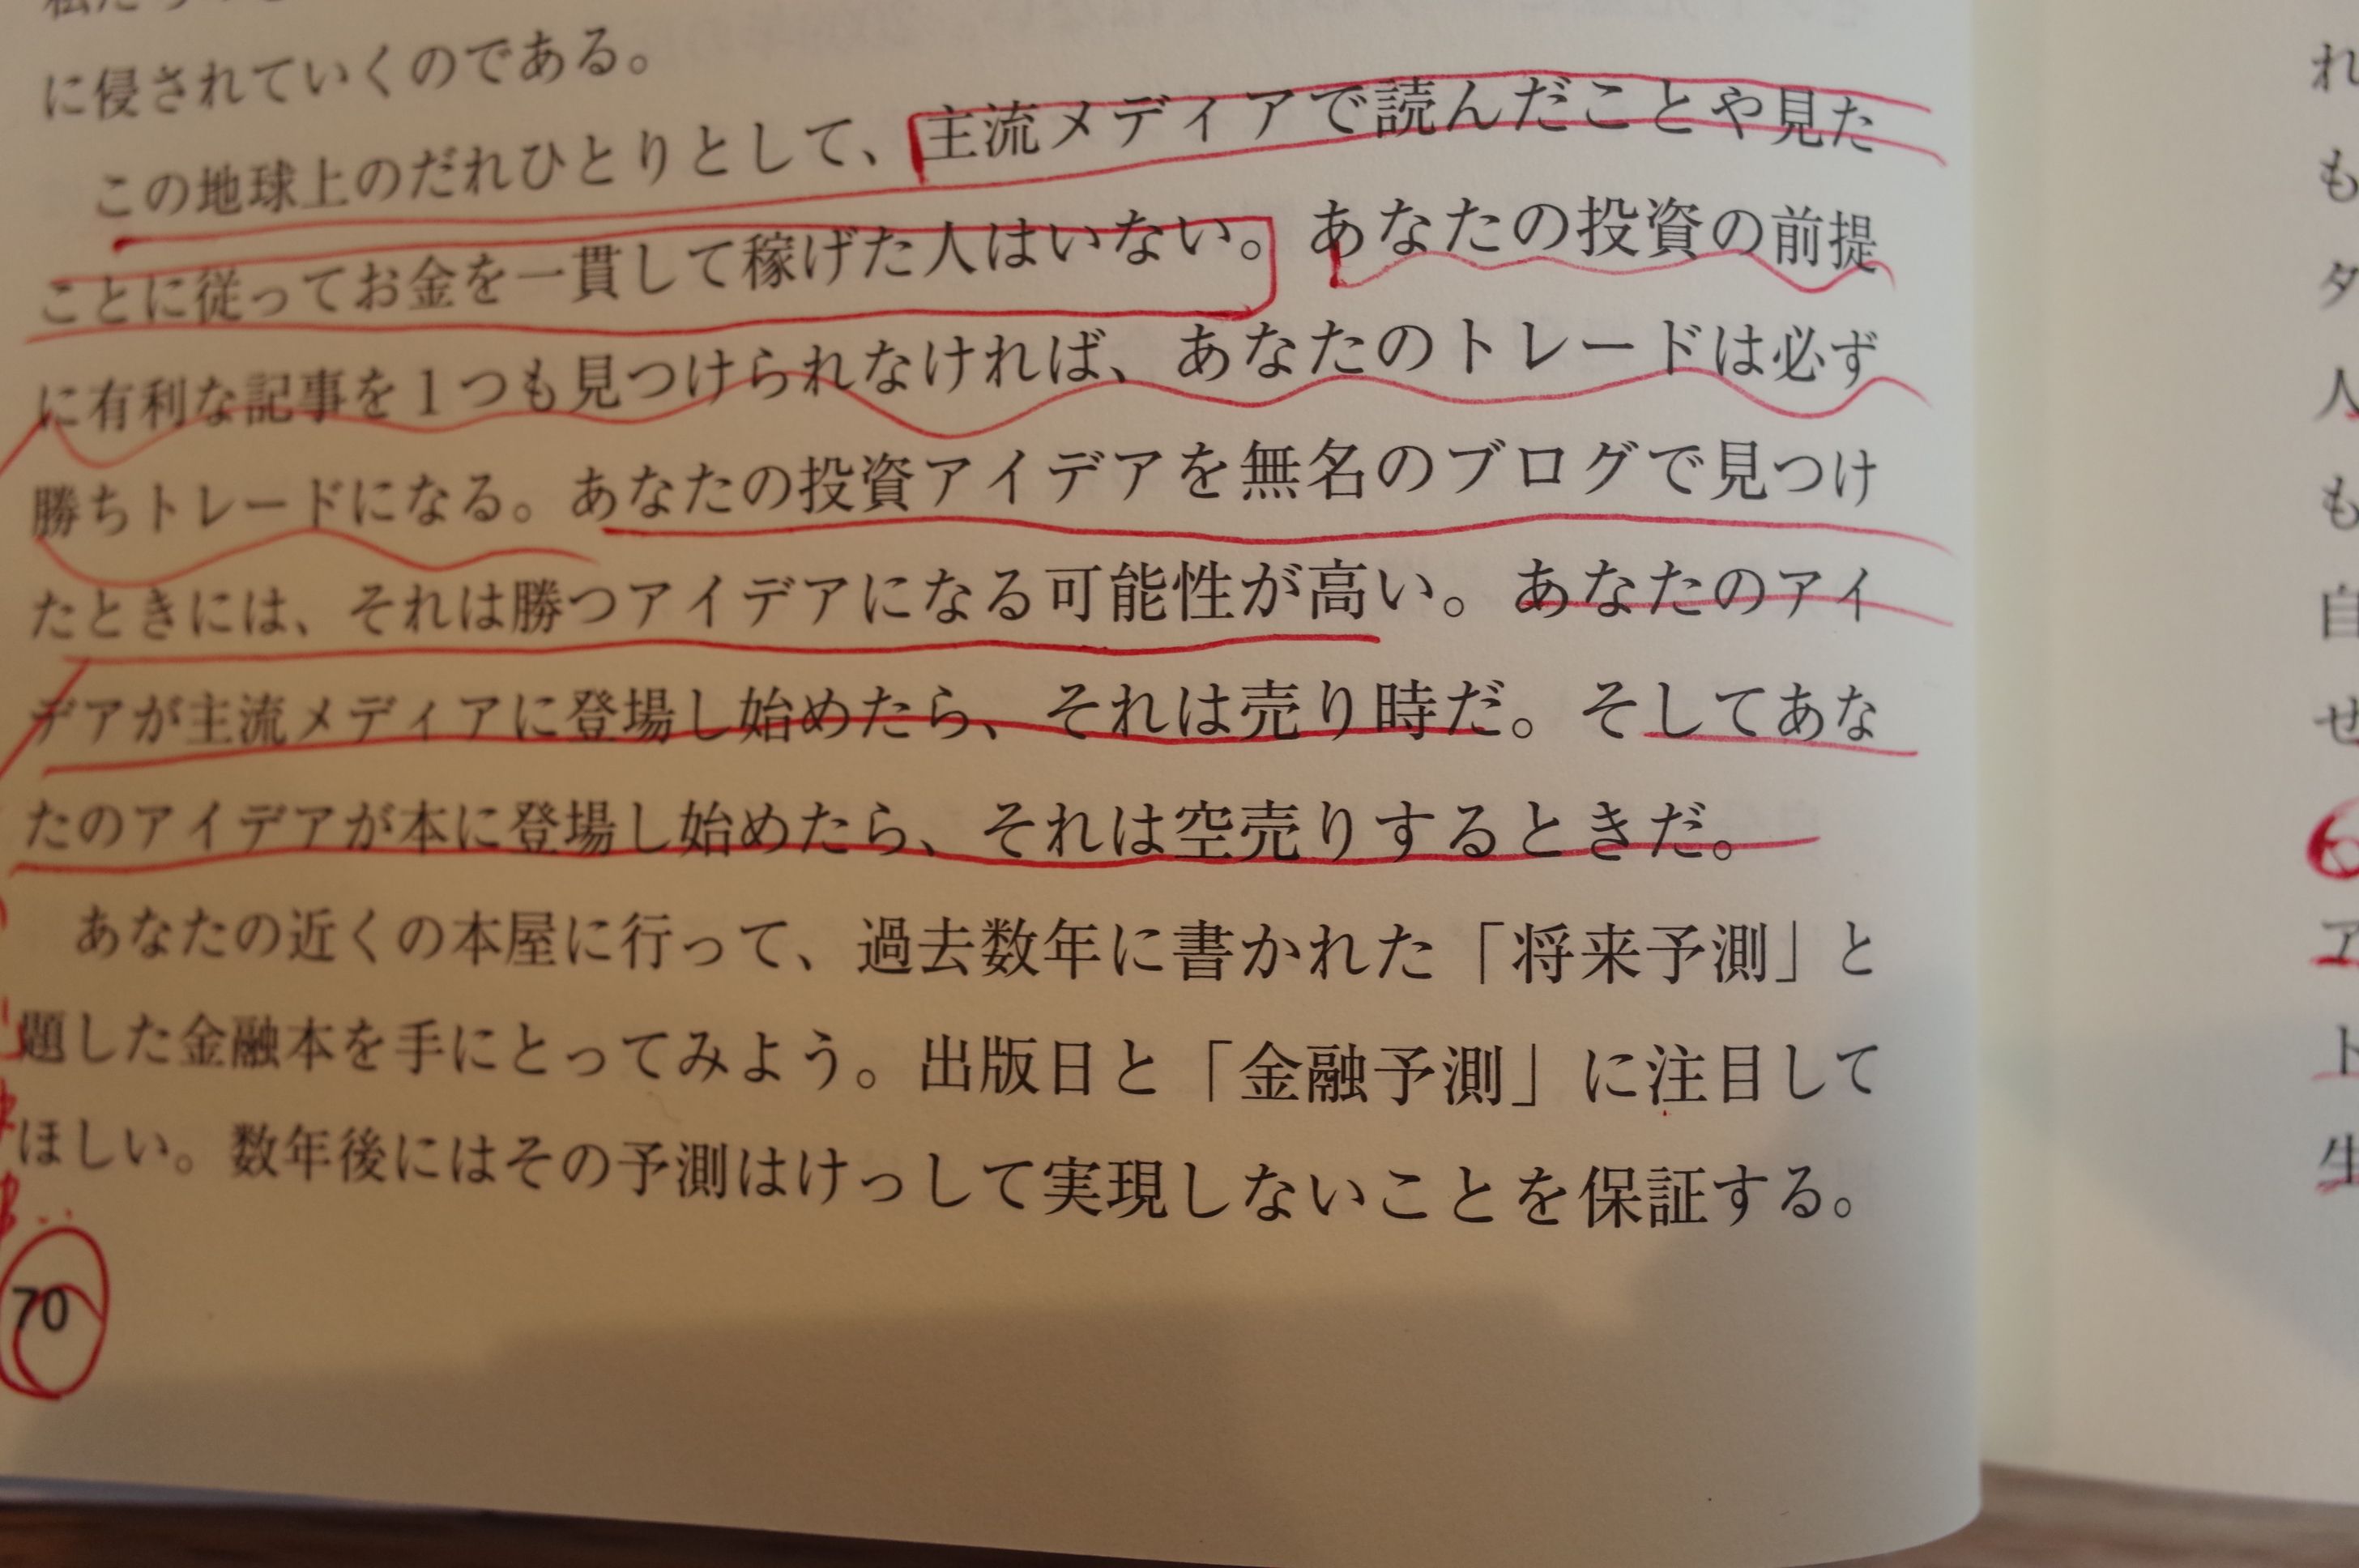 に侵されていくのである。
この地球上のだれひとりとして、主流メディアで読んだことや見た
ことに従ってお金を一貫して稼げた人はいない。あなたの投資の前提
に有利な記事を1つも見つけられなければ、あなたのトレードは必ず
勝ちトレードになる。あなたの投資アイデアを無名のブログで見つけ
たときには、それは勝つアイデアになる可能性が高い。あなたのアイ
デアが主流メディアに登場し始めたら、それは売り時だ。そしてあな
たのアイデアが本に登場し始めたら、それは空売りするときだ。
あなたの近くの本屋に行って、過去数年に書かれた「将来予測」と
題した金融本を手にとってみよう。出版日と「金融予測」に注目して
ほしい。数年後にはその予測はけっして実現しないことを保証する。
70
れ
も
タ
人
も
自
せ
ア
ト
生